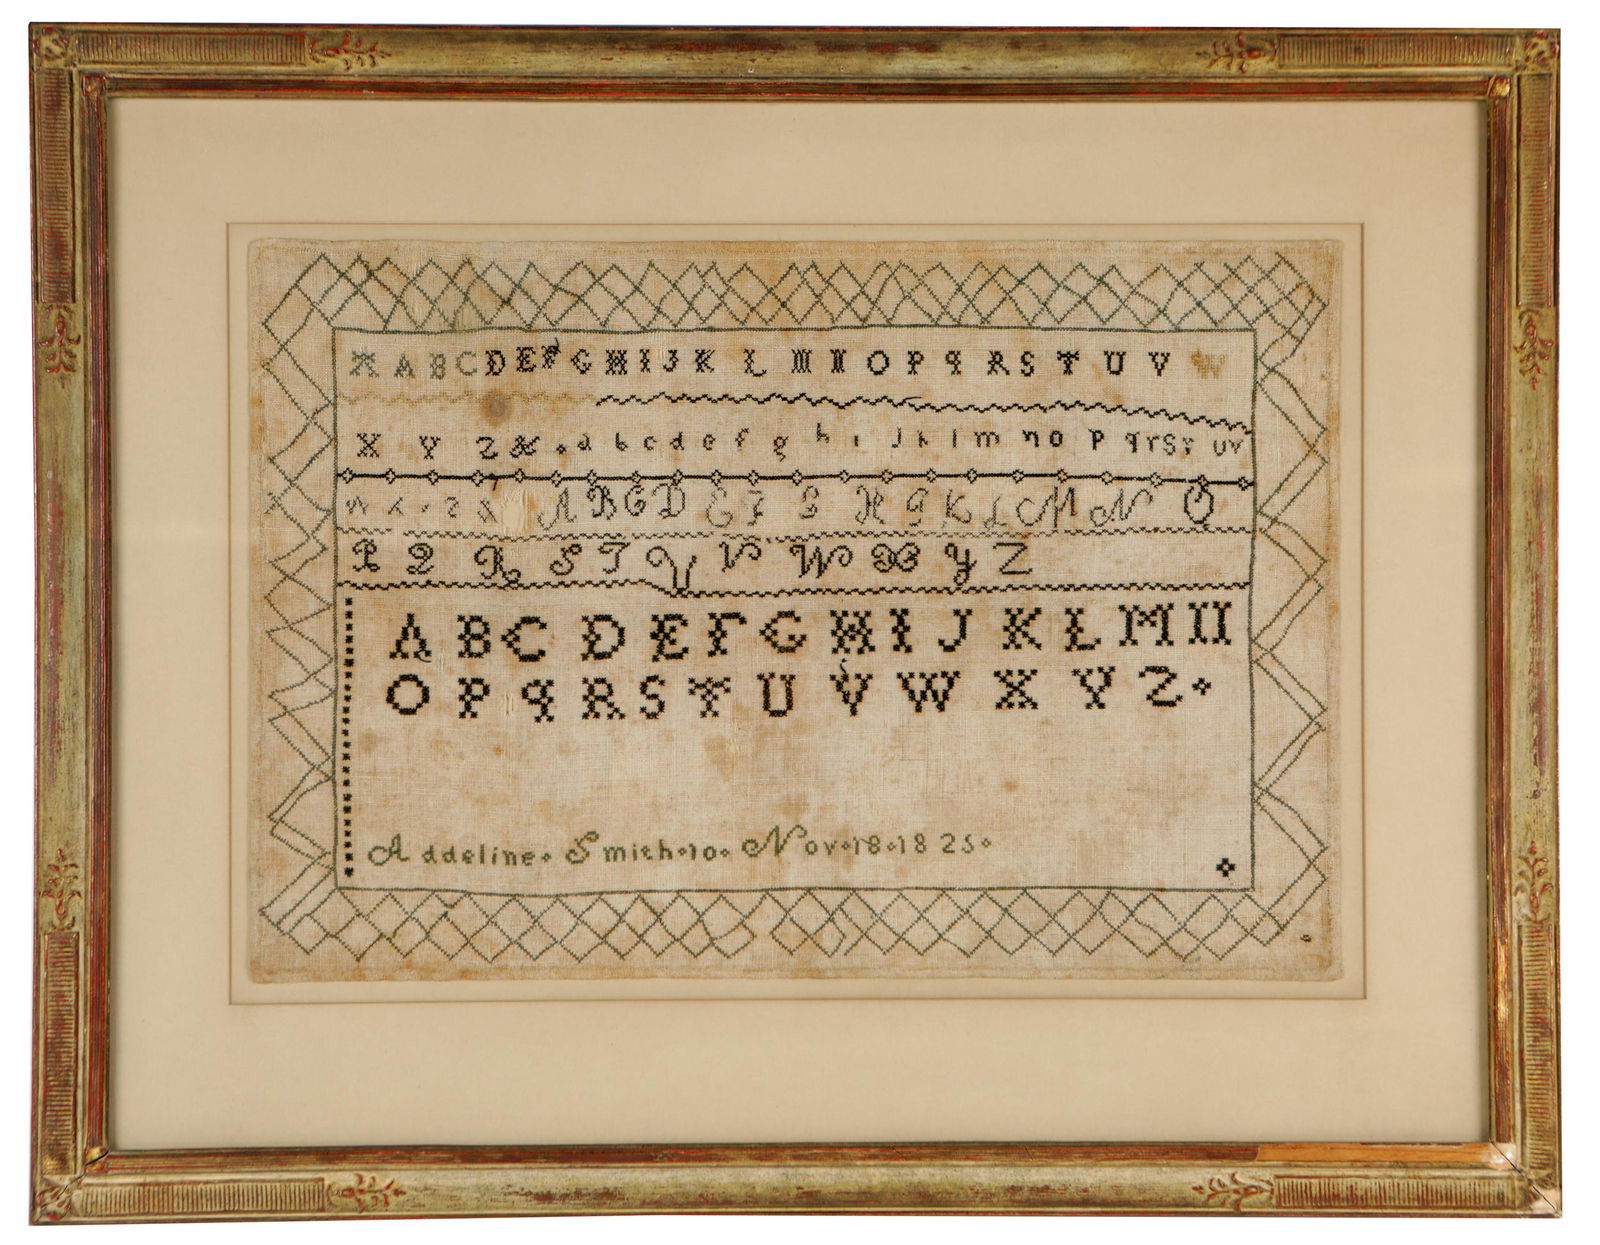 A A B C D E F G H I J K L M N O P q R S T U V W
X Y Z & a b c d e f g h i j k l m n o p q r s t u v
w x y z & A B C D E F G H I K L M N O
P Q R S T U V W X Y Z
A B C D E F G H I J K L M N
O P q R S T U V W X Y Z
Addeline Smith 10 Nov 18 1825